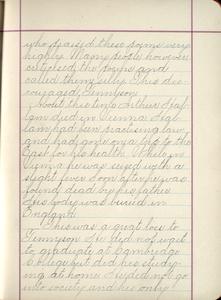 who praised these poems very
highly. Many people however
criticised the poems and
called them silly. This dis-
couraged Tennyson.
About this time Arthur Hal-
lam died in Vienna. Hal-
lam had been practising law
and had gone on a trip to the
East for his health. While in
Vienna he was seized with a
slight fever. Soon after he was
found dead by his father.
His body was buried in
England.
This was a great loss to
Tennyson. He did not wait
to graduate at Cambridge
College but did his study-
ing at home. He did not go
into society and his only